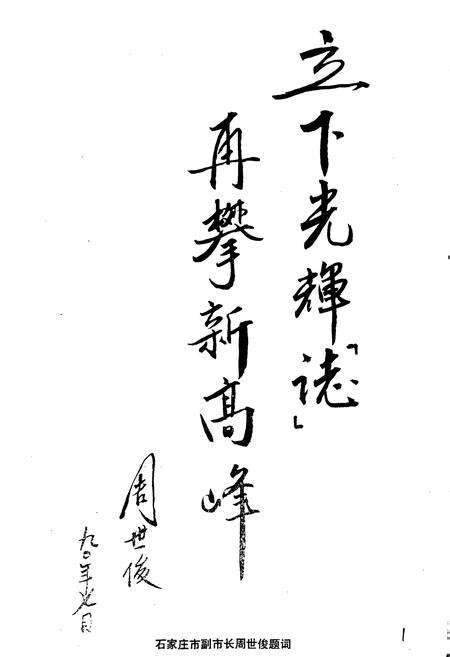 立下光輝「誌」
再攀新高峰
周世俊
九〇年
石家庄市副市长周世俊题词
1